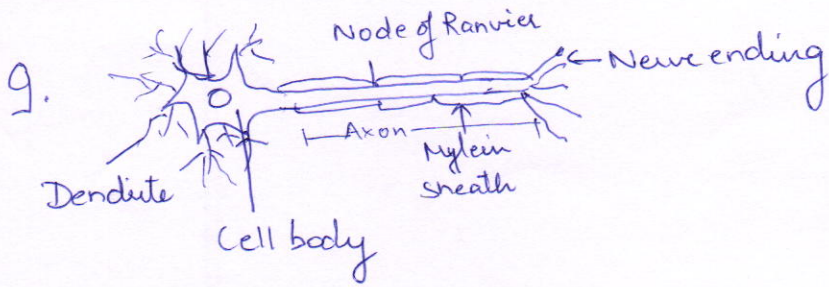 Node of Ranvier
9.
Nerve ending
Axon
Mylein
sheath
Dendrite
Cell body